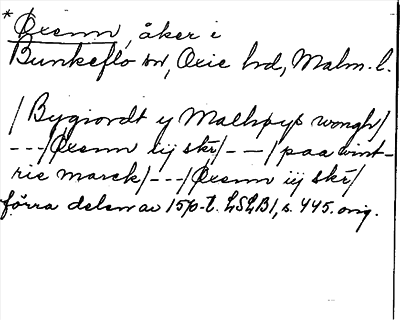 *Øxenn, åker i
Bunkeflo sn, Oxie hd, Malm. l.
/Bygiordt y Malhøys wongh/
---/Øxenn iij skr/---/paa wint-
rie marck/---/Øxenn iij skr/
förra delen av 1570-t. LSLB1, s. 445. orig.